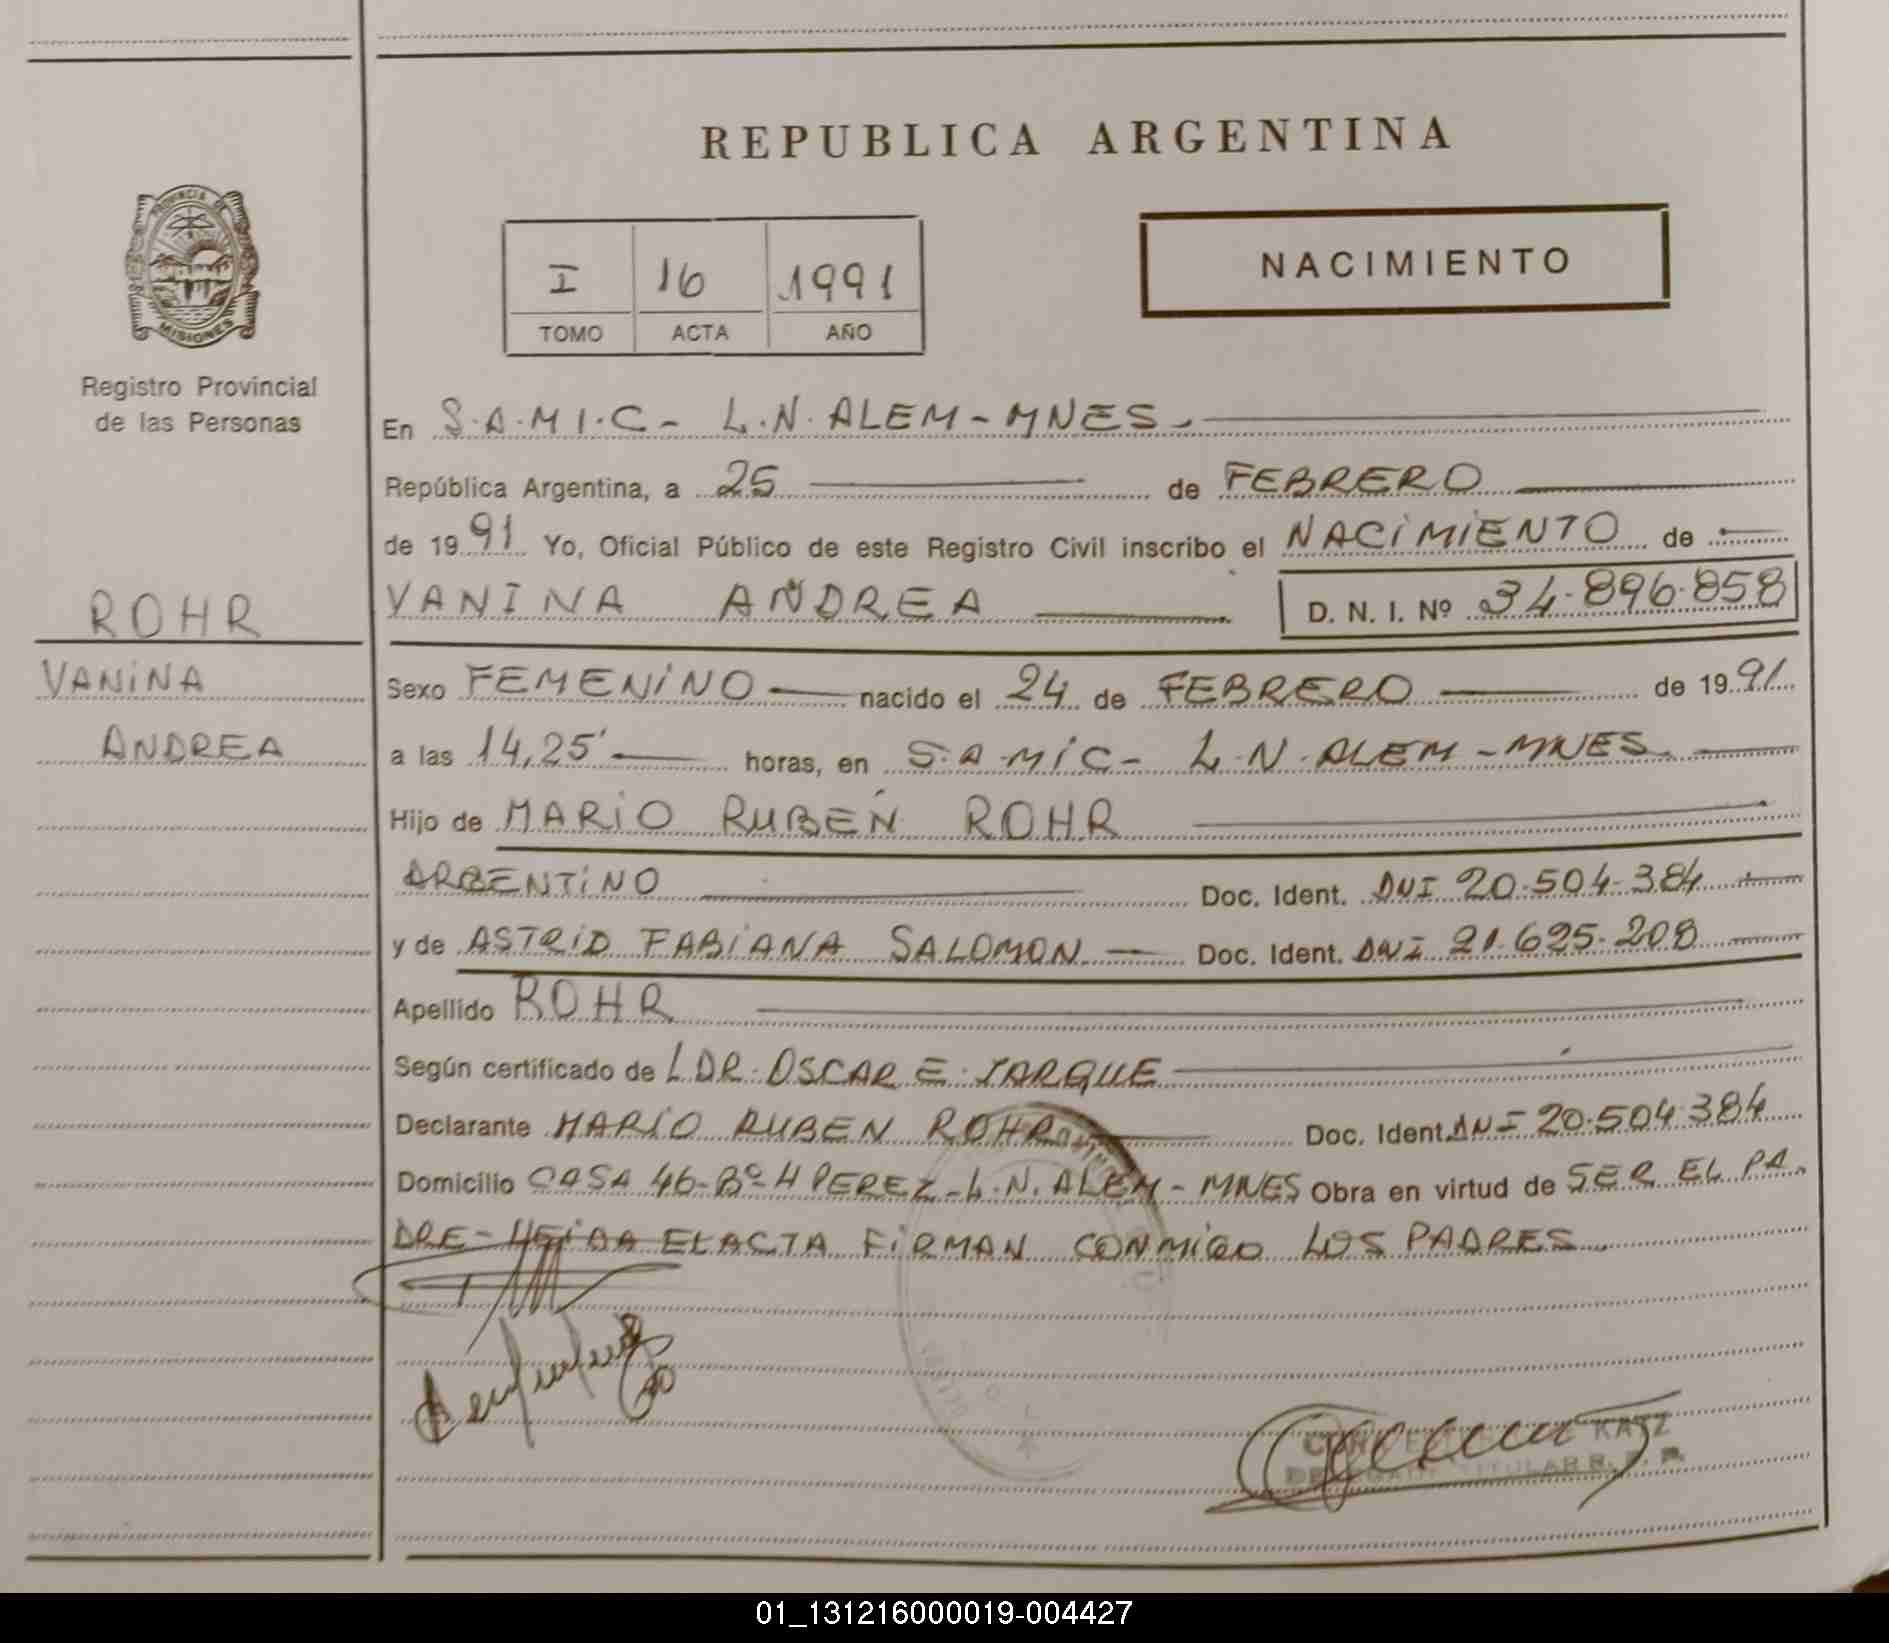 REPUBLICA ARGENTINA
PROVINCIA DE
MISIONES
Registro Provincial
de las Personas
I 16 1991
TOMO ACTA AÑO
NACIMIENTO
En S.A.M.I.C- L.N.ALEM-MNES.
República Argentina, a 25 de FEBRERO
de 1991 Yo, Oficial Público de este Registro Civil inscribo el NACIMIENTO de
VANINA ANDREA D. N. I. Nº 34.896.858
ROHR
VANINA
ANDREA
Sexo FEMENINO nacido el 24 de FEBRERO de 1991
a las 14,25' horas, en S.A.MIC- L.N.ALEM-MNES.
Hijo de MARIO RUBEN ROHR
ARGENTINO Doc. Ident. DNI 20.504.384
y de ASTRID FABIANA SALOMON Doc. Ident. DNI 21.625.208
Apellido ROHR
Según certificado de L.DR.OSCAR E.
Declarante MARIO RUBEN ROHR Doc. Ident. DNI 20.504.384
Domicilio CASA 46-Bº H PEREZ-L.N.ALEM-MNES Obra en virtud de SER EL PA
DRE-LEIDA EL ACTA FIRMAN CONMIGO LOS PADRES
KATZ
01_131216000019-004427